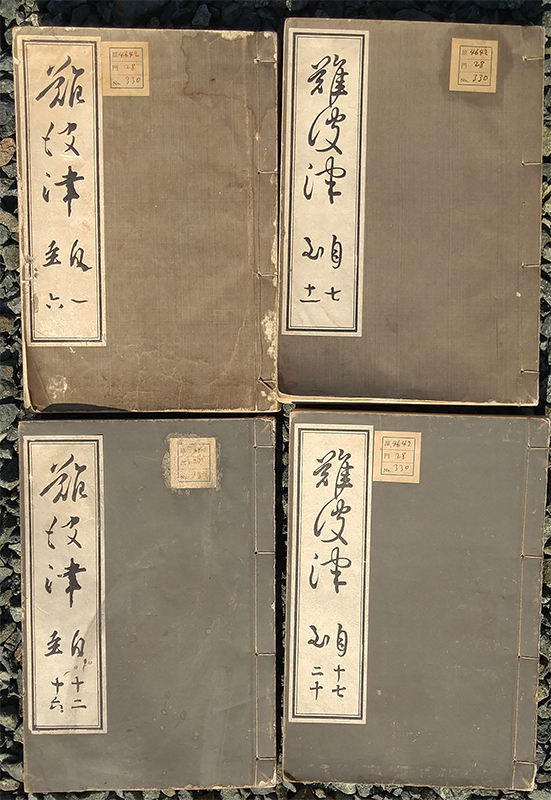 難波津
自一
至六
4642
門 28
No. 330
難波津
自七
至十一
4642
門 28
No. 330
難波津
自十二
至十六
難波津
自十七
至二十
4642
門 28
No. 330